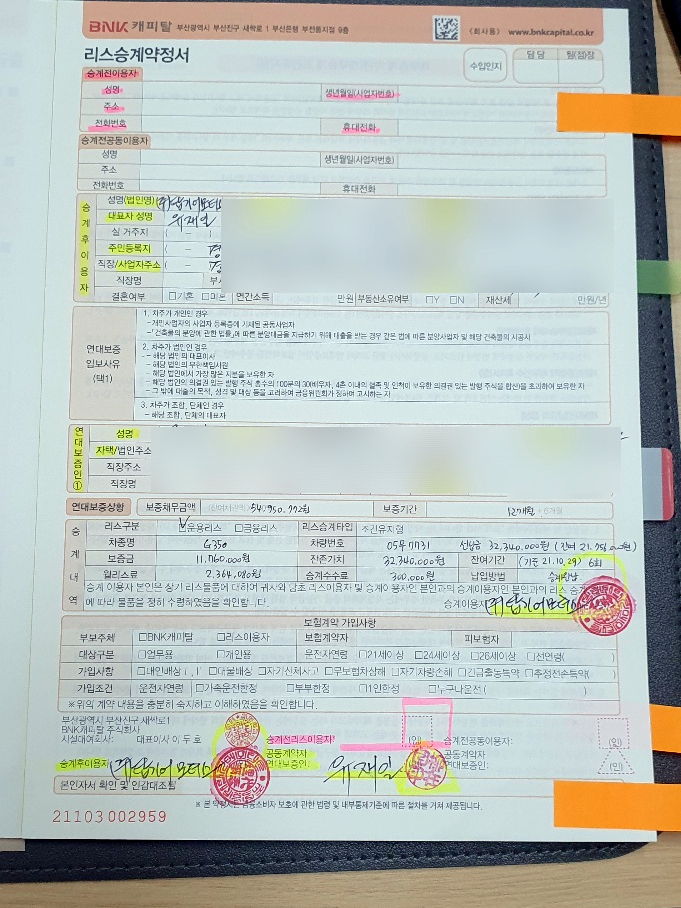 BNK 캐피탈 부산광역시 부산진구 새싹로 1 부산은행 부전동지점 9층 <회사용> www.bnkcapital.co.kr
리스승계약정서
수입인지 담 당 팀(점)장
승계전이용자
성명 생년월일(사업자번호)
주소
전화번호 휴대전화
승계전공동이용자
성명 생년월일(사업자번호)
주소
전화번호 휴대전화
승계후이용자
성명(법인명)
대표자 성명 유재일
실 거주지 ( - )
주민등록지 ( - )
직장/사업자주소 ( - )
직장명
결혼여부 □기혼 □미혼 연간소득 만원 부동산소유여부 □Y □N 재산세 만원/년
연대보증 입보사유 (택1)
1. 차주가 개인인 경우
- 개인사업자의 사업자 등록증에 기재된 공동사업자
- 「건축물의 분양에 관한 법률」에 따른 분양대금을 지급하기 위해 대출을 받는 경우 같은 법에 따른 분양사업자 및 해당 건축물의 시공사
2. 차주가 법인인 경우
- 해당 법인의 대표이사
- 해당 법인의 무한책임사원
- 해당 법인에서 가장 많은 지분을 보유한 자
- 해당 법인의 의결권 있는 발행 주식 총수의 100분의 30(배우자, 4촌 이내의 혈족 및 인척이 보유한 의결권 있는 발행 주식을 합산)을 초과하여 보유한 자
- 그 밖에 대출의 목적, 성격 및 대상 등을 고려하여 금융위원회가 정하여 고시하는 자
3. 차주가 조합, 단체인 경우
- 해당 조합, 단체의 대표자
연대보증인①
성명
자택/법인주소
직장주소
직장명
연대보증상황 보증채무금액 54,950,772원 보증기간 12개월
승계내역
리스구분 ☑운용리스 □금융리스 리스승계타입 조건유지형
차종명 G350 차량번호 05무7731 선납금 32,340,000원
보증금 11,760,000원 잔존가치 32,340,000원 잔여기간 (기준 21.10.29) 6회
월리스료 2,364,080원 승계수수료 300,000원 납입방법
승계 이용자 본인은 상기 리스물품에 대하여 귀사와 당초 리스이용자 및 승계이용자인 본인과의 리스
에 따라 물품을 정히 수령하였음을 확인합니다. 승계이용자
보험계약 가입사항
부보주체 □BNK캐피탈 □리스이용자 보험계약자 피보험자
대상구분 □업무용 □개인용 운전자연령 □21세이상 □24세이상 □26세이상 □전연령( )
가입사항 □대인배상Ⅰ,Ⅱ □대물배상 □자기신체사고 □무보험차상해 □자기차량손해 □긴급출동특약 □추정전손특약( )
가입조건 운전자연령 □가족운전한정 □부부한정 □1인한정 □누구나운전( )
※위의 계약 내용을 충분히 숙지하고 이해하였음을 확인합니다.
부산광역시 부산진구 새싹로1
BNK캐피탈 주식회사
시설대여회사: 대표이사 이 두 호 승계전리스이용자: (인) 승계전공동이용자: (인)
승계후이용자 공동계약자 연대보증인: 유재일 공동계약자 연대보증인: (인)
본인자서 확인 및 인감대조필
※ 본 약정서는 금융소비자 보호에 관한 법령 및 내부통제기준에 따른 절차를 거쳐 제공됩니다.
21103002959